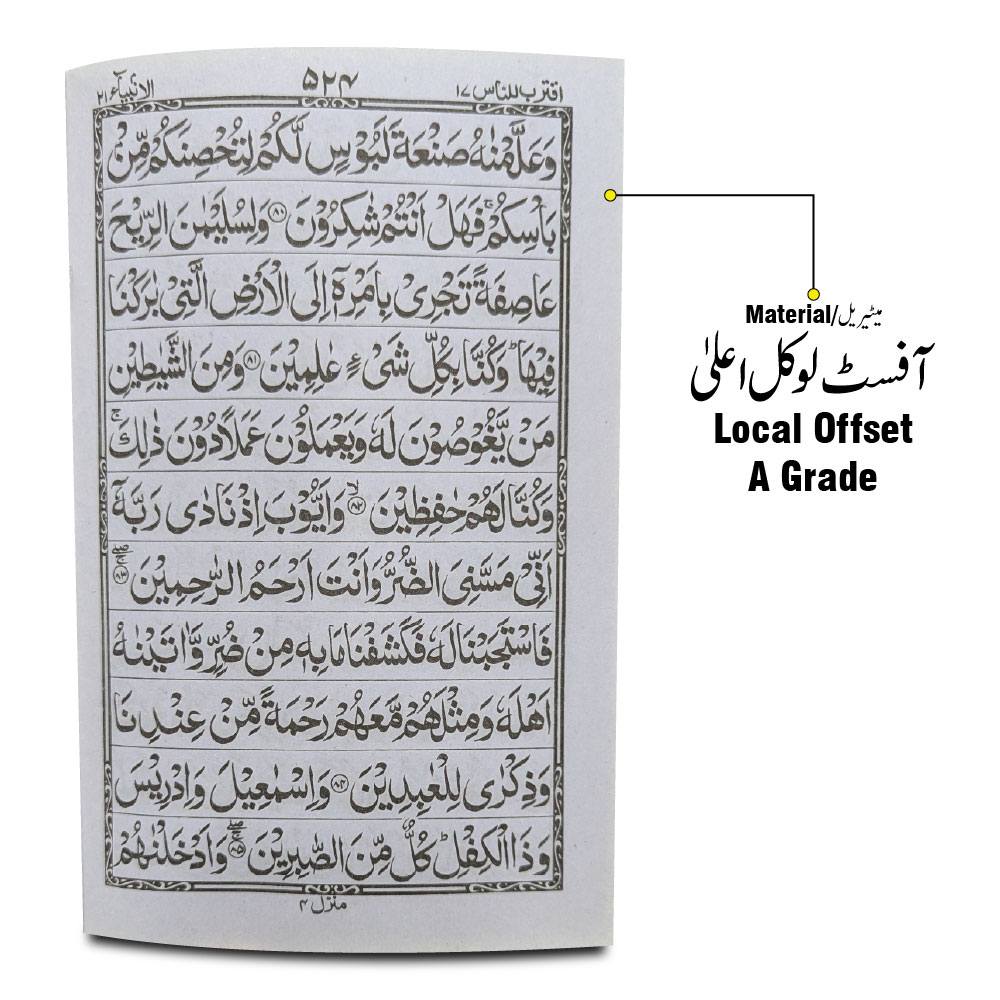 اقترب للناس ۱۷
۵۲۴
الانبیآء ۲۱
وَعَلَّمْنٰهُ صَنْعَةَ لَبُوْسٍ لَّكُمْ لِتُحْصِنَكُمْ مِّنْۢ
بَاْسِكُمْ ۚ فَهَلْ اَنْتُمْ شٰكِرُوْنَ ۸۰ وَلِسُلَيْمٰنَ الرِّيْحَ
عَاصِفَةً تَجْرِىْ بِاَمْرِهٖۤ اِلَى الْاَرْضِ الَّتِىْ بٰرَكْنَا
فِيْهَا ؕ وَكُنَّا بِكُلِّ شَىْءٍ عٰلِمِيْنَ ۸۱ وَمِنَ الشَّيٰطِيْنِ
مَنْ يَّغُوْصُوْنَ لَهٗ وَيَعْمَلُوْنَ عَمَلًا دُوْنَ ذٰلِكَ ۚ
وَكُنَّا لَهُمْ حٰفِظِيْنَ ۙ ۸۲ وَاَيُّوْبَ اِذْ نَادٰى رَبَّهٗۤ
اَنِّىْ مَسَّنِىَ الضُّرُّ وَاَنْتَ اَرْحَمُ الرّٰحِمِيْنَ ۸۳
فَاسْتَجَبْنَا لَهٗ فَكَشَفْنَا مَا بِهٖ مِنْ ضُرٍّ وَّاٰتَيْنٰهُ
اَهْلَهٗ وَمِثْلَهُمْ مَّعَهُمْ رَحْمَةً مِّنْ عِنْدِنَا
وَذِكْرٰى لِلْعٰبِدِيْنَ ۸۴ وَاِسْمٰعِيْلَ وَاِدْرِيْسَ
وَذَا الْكِفْلِ ؕ كُلٌّ مِّنَ الصّٰبِرِيْنَ ۸۵ وَاَدْخَلْنٰهُمْ
منزل ۴
Material/میٹیریل
آفسٹ لوکل اعلیٰ
Local Offset
A Grade